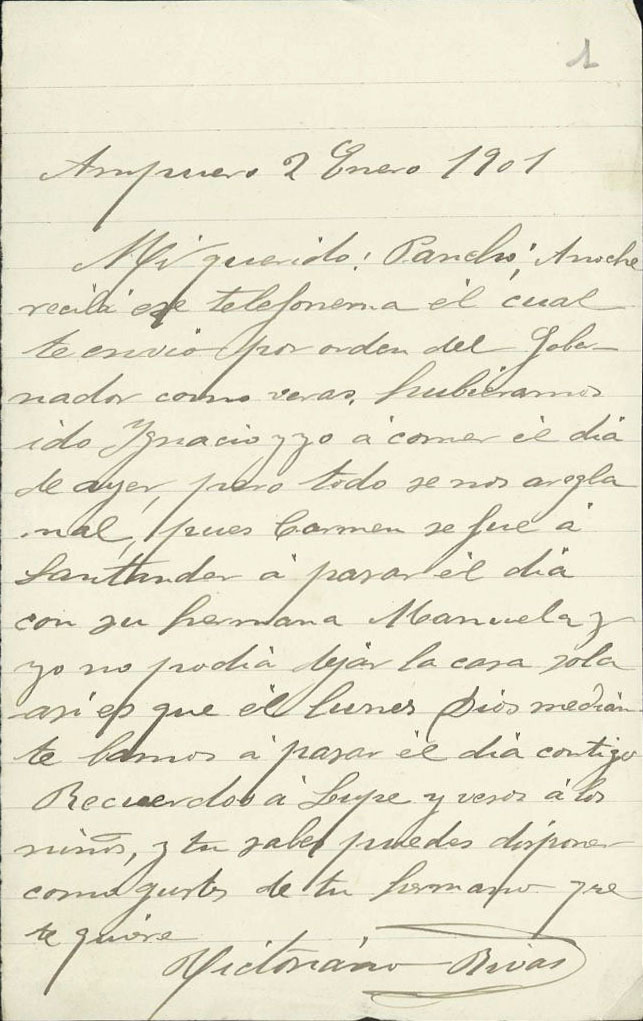 1
Ampuero 2 Enero 1901
Mi querido! Pancho! Anoche
recibi ese telefonema el cual
te envió por orden del Gober-
nador como veras, hubieramos
ido Ygnacio y yo á comer él día
de ayer, pero todo se nos aregla
mal, pues Carmen se fue á
Santander á pasar él día
con su hermana Manuela y
yo no podía dejár la casa sola
asi es que él lunes Dios median-
te bamos á pasar él día contigo
Recuerdos á Lupe y vesos á los
niños, y tu sabes puedes disponer
como gustes de tu hermano que
te quiere
Victoriáno Rivas